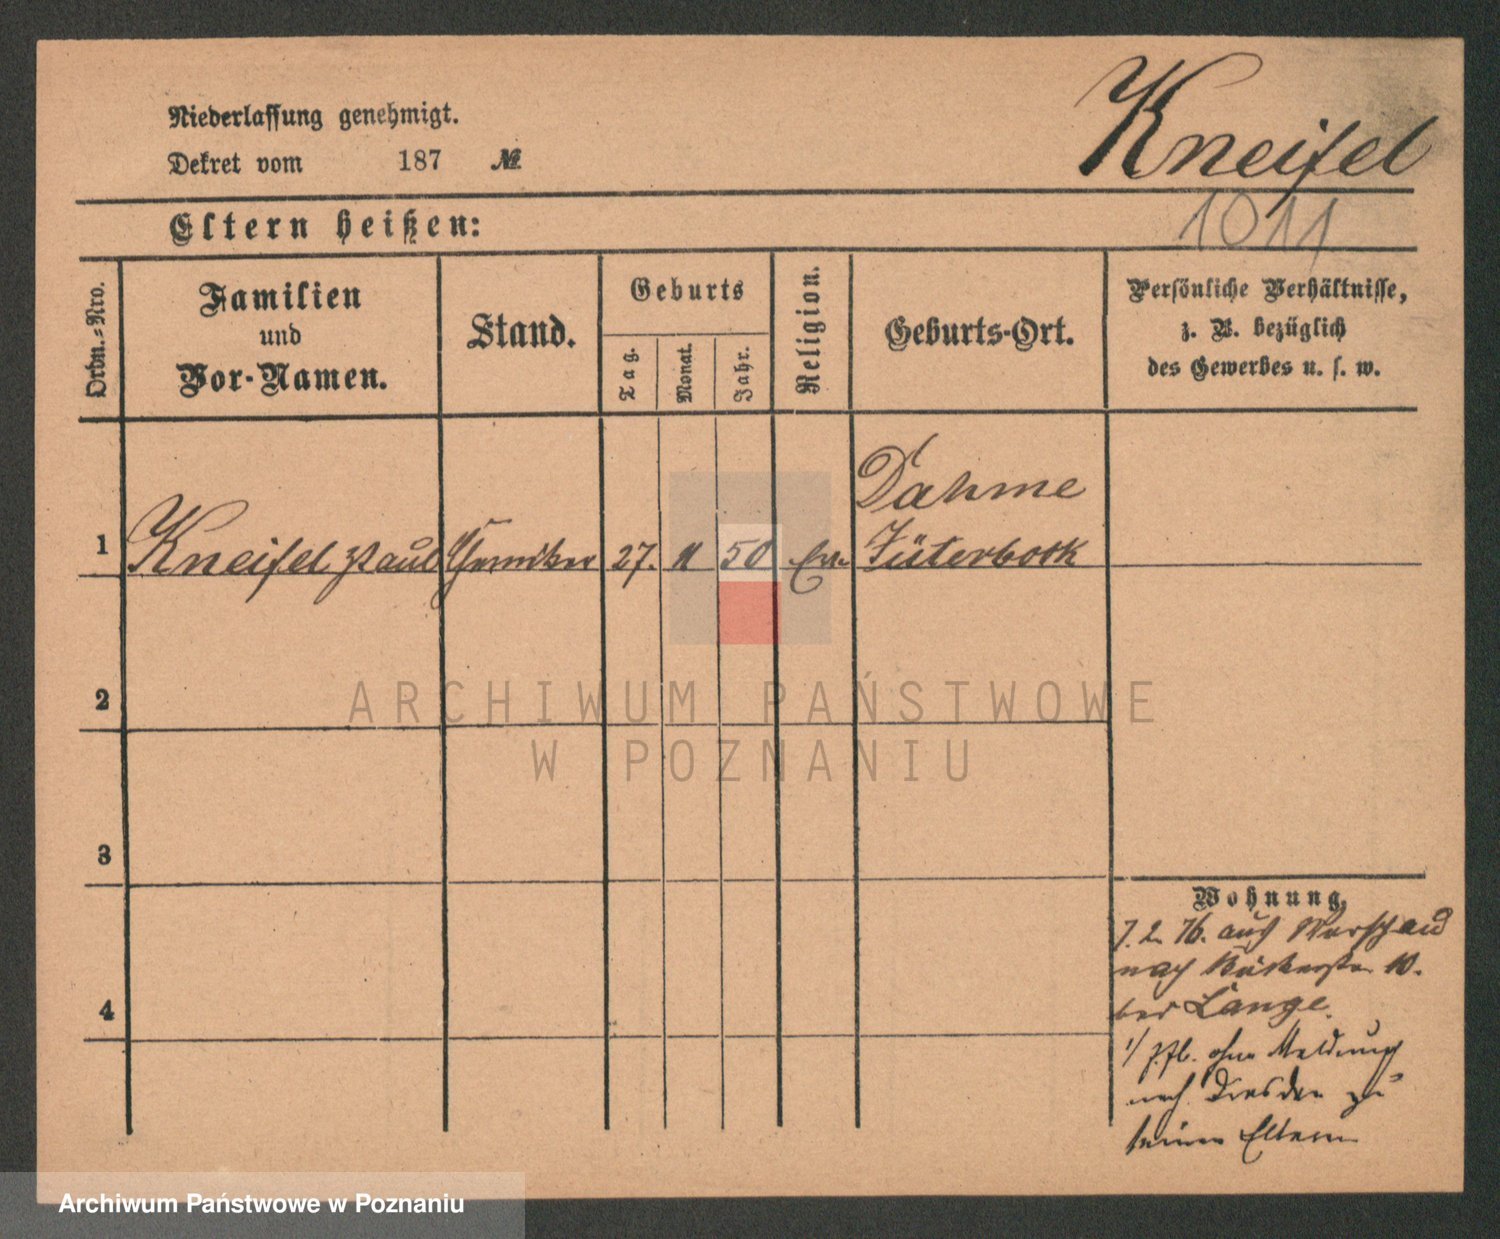 Kneifel
Niederlassung genehmigt.
Dekret vom 187 №
Eltern heißen:
1011
Ordn.-Nro.
Familien
und
Vor-Namen.
Stand.
Geburts
Tag.
Monat.
Jahr.
Religion.
Geburts-Ort.
Persönliche Verhältnisse,
z. B. bezüglich
des Gewerbes u. s. w.
1 Kneifel Paul 27. 11 50 Ev. Dahme
Jüterbock
2
ARCHIWUM PAŃSTWOWE
W POZNANIU
3
Wohnung.
7. 2. 76. aus Warschau
nach 10.
bei Lange.
1/ ohne Meldung
nach Dresden zu
seinen Eltern
4
Archiwum Państwowe w Poznaniu